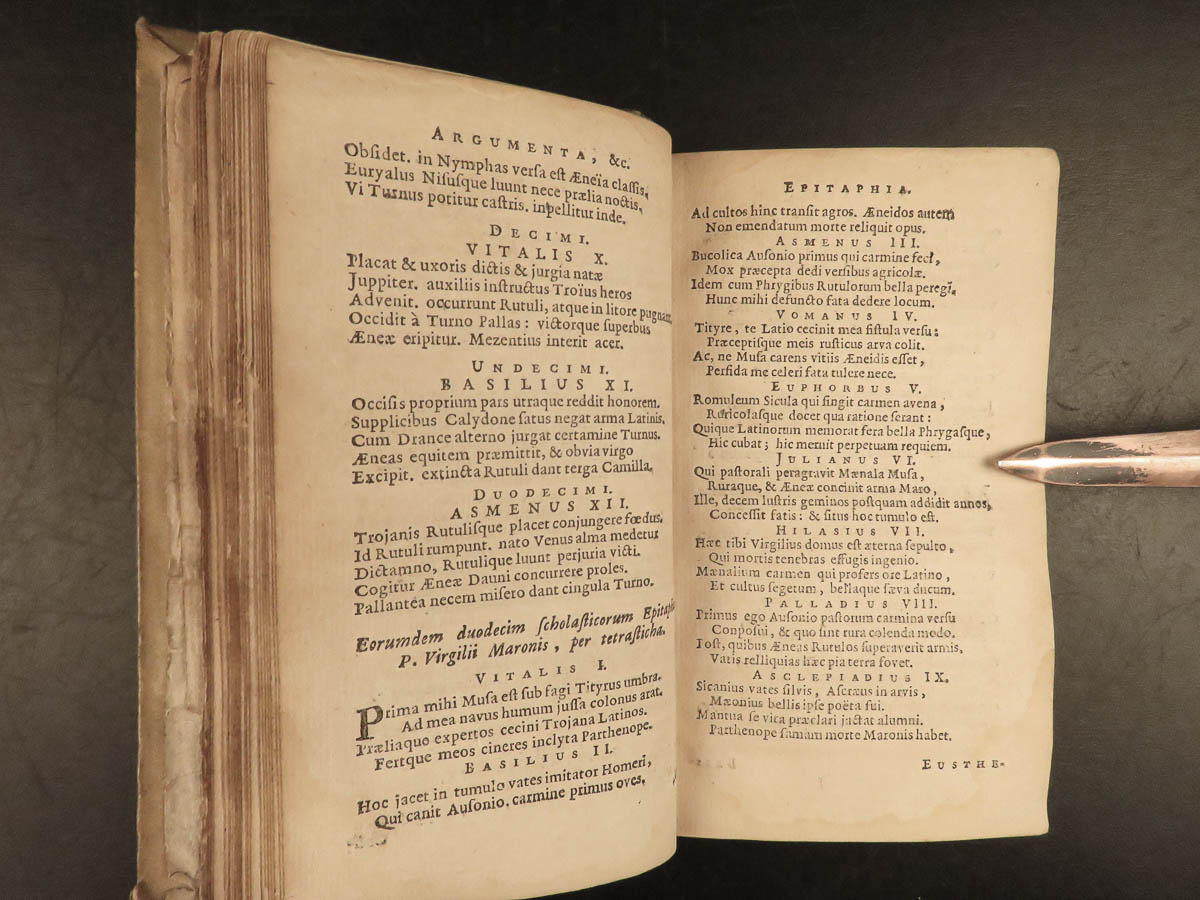 ARGUMENTA, &c.
Obsidet. in Nymphas versa est Æneïa classis,
Euryalus Nisusque luunt nece prælia noctis,
Vi Turnus potitur castris. inpellitur inde.
DECIMI.
VITALIS X.
Placat & uxoris dictis & jurgia natæ
Juppiter. auxiliis instructus Troïus heros
Advenit. occurrunt Rutuli, atque in litore pugnam.
Occidit à Turno Pallas: victorque superbus
Æneæ eripitur. Mezentius interit acer.
UNDECIMI.
BASILIUS XI.
Occisis proprium pars utraque reddit honorem.
Supplicibus Calydone satus negat arma Latinis.
Cum Drance alterno jurgat certamine Turnus.
Æneas equitem præmittit, & obvia virgo
Excipit. extincta Rutuli dant terga Camilla.
DUODECIMI.
ASMENUS XII.
Trojanis Rutulisque placet conjungere fœdus.
Id Rutuli rumpunt. nato Venus alma medetur
Dictamno, Rutulique luunt perjuria victi.
Cogitur Æneæ Dauni concurrere proles.
Pallantea necem misero dant cingula Turno.
Eorumdem duodecim scholasticorum Epitaphia
P. Virgilii Maronis, per tetrasticha.
VITALIS I.
Prima mihi Musa est sub fagi Tityrus umbra.
Ad mea navus humum jussa colonus arat.
Præliaque expertos cecini Trojana Latinos.
Fertque meos cineres inclyta Parthenope.
BASILIUS II.
Hoc jacet in tumulo vates imitator Homeri,
Qui canit Ausonio, carmine primus oves,
EPITAPHIA.
Ad cultos hinc transit agros. Æneidos autem
Non emendatum morte reliquit opus.
ASMENUS III.
Bucolica Ausonio primus qui carmine feci,
Mox præcepta dedi versibus agricolæ.
Idem cum Phrygibus Rutulorum bella peregi.
Hunc mihi defuncto fata dedere locum.
VOMANUS IV.
Tityre, te Latio cecinit mea fistula versu:
Præceptisque meis rusticus arva colit.
Ac, ne Musa carens vitiis Æneidis esset,
Perfida me celeri fata tulere nece.
EUPHORBUS V.
Romuleum Sicula qui fingit carmen avena,
Ruricolasque docet qua ratione serant:
Quique Latinorum memorat fera bella Phrygasque,
Hic cubat; hic meruit perpetuam requiem.
JULIANUS VI.
Qui pastorali peragravit Mænala Musa,
Ruraque, & Æneæ concinit arma Maro,
Ille, decem lustris geminos postquam addidit annos,
Concessit fatis: & situs hoc tumulo est.
HILASIUS VII.
Hæc tibi Virgilius domus est æterna sepulto,
Qui mortis tenebras effugis ingenio.
Mænalium carmen qui profers ore Latino,
Et cultus segetum, bellaque sæva ducum.
PALLADIUS VIII.
Primus ego Ausonio pastorum carmina versu
Conposui, & quo sint rura colenda modo.
Iost, quibus Æneas Rutulos superaverit armis,
Vatis relliquias hæc pia terra fovet.
ASCLEPIADIUS IX.
Sicanius vates silvis, Ascræus in arvis,
Mæonius bellis ipse poëta fui.
Mantua se vita præclari jactat alumni.
Parthenope famam morte Maronis habet.
EUSTHE-